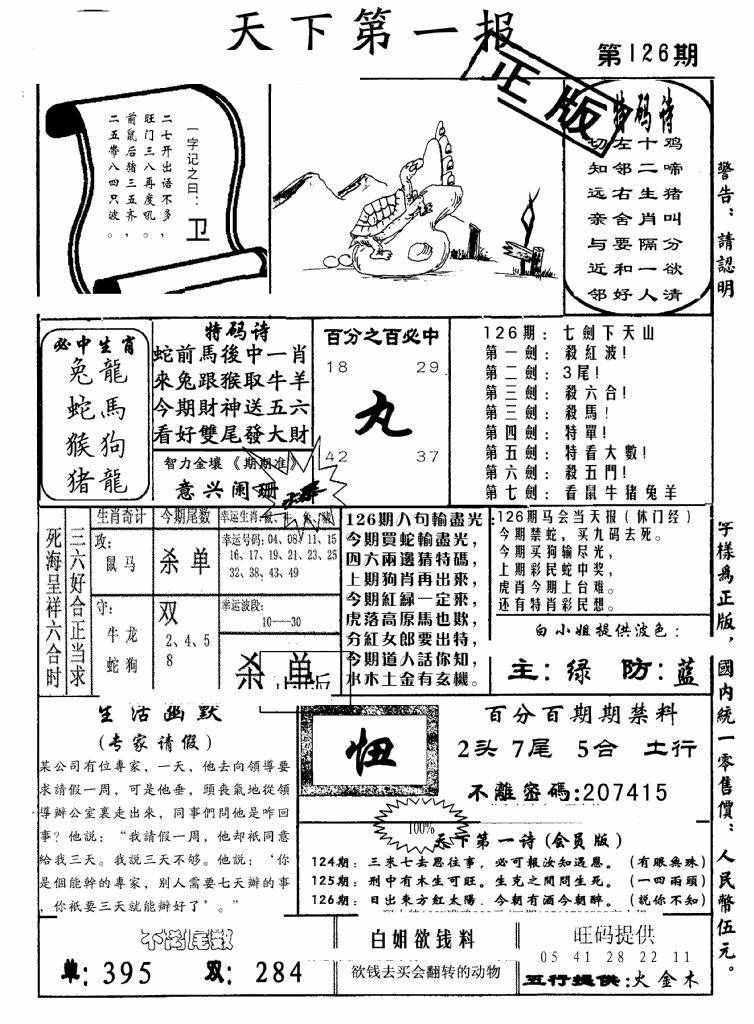 天下第一报
第126期
正版
一字记之曰：
卫
二七开出语不多，
旺门三八再度吼。
前鼠后猪三五齐，
二五带八四只波。
特码诗
鸡啼猪叫分欲清
十二生肖隔一人
左邻右舍要和好
切知远亲与近邻
警告：請認明
字樣為正版，國内統一零售價：人民幣伍元。
必中生肖
兔龍
蛇馬
猴狗
猪龍
特码诗
蛇前馬後中一肖
來兔跟猴取牛羊
今期財神送五六
看好雙尾發大財
智力金壤《期期准》
意兴阑珊
百分之百必中
18 29
丸
42 37
126期：七劍下天山
第一劍：殺紅波！
第二劍：3尾！
第三劍：殺六合！
第三劍：殺馬！
第四劍：特單！
第五劍：特看大數！
第六劍：殺五門！
第七劍：看鼠牛猪兔羊
三六好合正当求
死海呈祥六合时
生肖奇计
攻：
鼠马
守：
牛龙
蛇狗
今期尾数
杀单
双
2、4、5
8
幸运号码：04、08、11、15
16、17、19、21、23、25
32、38、43、49
幸运波段：
10—30
杀单
126期八句輸盡光
今期買蛇輸盡光，
四六兩邊猜特碼，
上期狗肖再出來，
今期紅緑一定來，
虎落高原馬也欺，
分紅女郎要出特，
今期道人話你知，
水木土金有玄機。
126期马会当天报（休门经）
今期禁蛇，买九码去死。
今期买狗输尽光，
上期彩民蛇中奖，
虎肖今期上台难。
还有特肖彩民想。
白小姐提供波色：
主：绿 防：蓝
生活幽默
(专家请假)
某公司有位專家，一天，他去向領導要
求請假一周，可是他垂，頭喪氣地從領
導辦公室裏走出來，同事們問他是咋回
事？他説：“我請假一周，他却衹同意
給我三天。我説三天不够。他説：‘你
是個能幹的專家，别人需要七天辦的事
，你衹要三天就能辦好了’。”
忸
百分百期期禁料
2头 7尾 5合 土行
不離密碼:207415
100%
天下第一诗(会员版)
124期：三来七去思往事，必可報汝知遇恩。（有眼無珠）
125期：刑中有木生可旺。生克之間問生死。（一四兩頭）
126期：日出東方紅太陽．今朝有酒今朝醉。（説你不知）
单：395 双：284
白姐欲钱料
欲钱去买会翻转的动物
旺码提供
05 41 28 22 11
五行提供：火金木